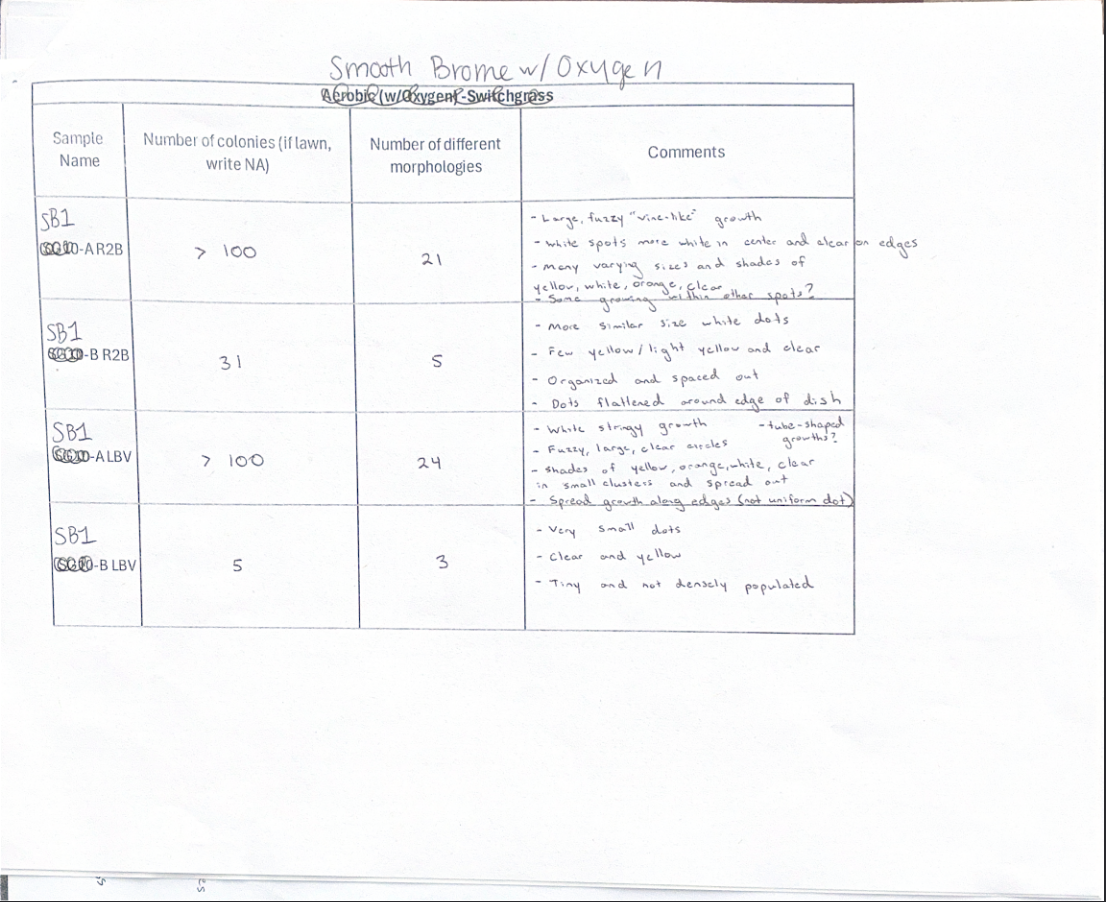 Smooth Brome w/ Oxygen
Aerobic (w/Oxygen)-Switchgrass
Sample Name
Number of colonies (if lawn, write NA)
Number of different morphologies
Comments
SB1
-A R2B
> 100
21
- Large, fuzzy "vine-like" growth
- White spots more white in center and clear on edges
- Many varying sizes and shades of
yellow, white, orange, clear
- Some growing within other spots?
SB1
-B R2B
31
5
- More similar size white dots
- Few yellow/light yellow and clear
- Organized and spaced out
- Dots flattened around edge of dish
SB1
-A LBV
> 100
24
- White stringy growth
- tube-shaped
growths?
- Fuzzy, large, clear circles
- shades of yellow, orange, white, clear
in small clusters and spread out
- Spread growth along edges (not uniform dot)
SB1
-B LBV
5
3
- Very small dots
- Clear and yellow
- Tiny and not densely populated